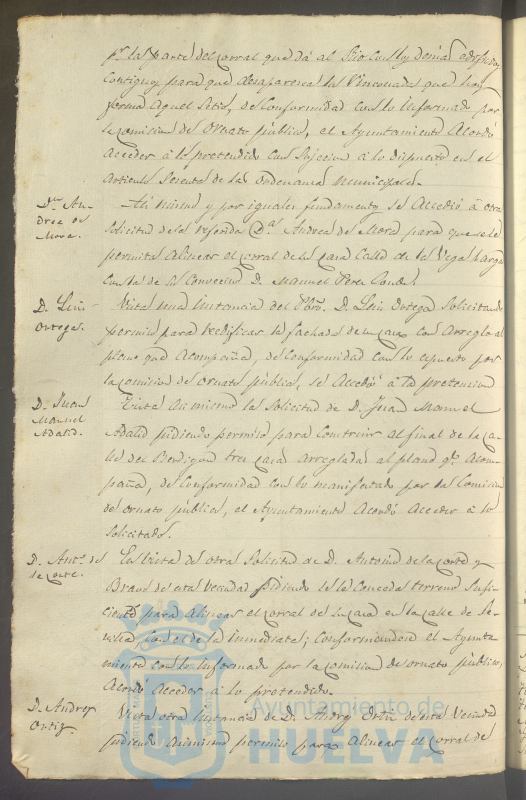 pr. la parte del corral que dá al Rio con los demas edificios
contiguos para que desaparesca las rinconadas que hoy
forma aquel sitio, de conformidad con lo informado por
la comision de ornato publico, el Ayuntamiento Acordó
Acceder á lo pretendido con sujecion á lo dispuesto en el
Articulo sesenta de las Ordenanzas municipales.
Dª. An-
drea de
Mora.
Asi mismo y por iguales fundamentos se Accedió á otra
solicitud de la referida Dª. Andrea de Mora para que se le
permita Alinear el corral de la casa Calle de la Vega Larga
con la de su convecino D. Manuel Perez Conde.
D. Luis
Ortega.
Vista una instancia del Pbro. D. Luis Ortega solicitando
permiso para redificar la fachada de su casa con Arreglo al
plano que Acompaña, de conformidad con lo espuesto por
la comision de ornato publico, se Accedió á la pretencion
D. Juan
Manuel
Adalid.
Vista Asi mismo la solicitud de D. Juan Manuel
Adalid pidiendo permiso para construir al final de la ca-
lle del Berdigon tres casas arregladas al plano qe. Acom-
paña, de conformidad con lo manifestado por la comision
de ornato publico, el Ayuntamiento Acordó Acceder á lo
solicitado.
D. Antº. de
la Corte.
En vista de otra solicitud de D. Antonio de la Corte y
Bravo de esta vecindad pidiendo se le conceda terreno sufi-
ciente para Alinear el corral de su casa en la calle de Se-
villa, con el de la inmediata; conformandose el Ayunta-
miento con lo informado por la comision de ornato publico,
Acordó Acceder á lo pretendido.
D. Andres
Ortiz
Vista otra instancia de D. Andres Ortiz de esta vecindad
pidiendo asimismo permiso para Alinear el corral de
Ayuntamiento de
HUELVA